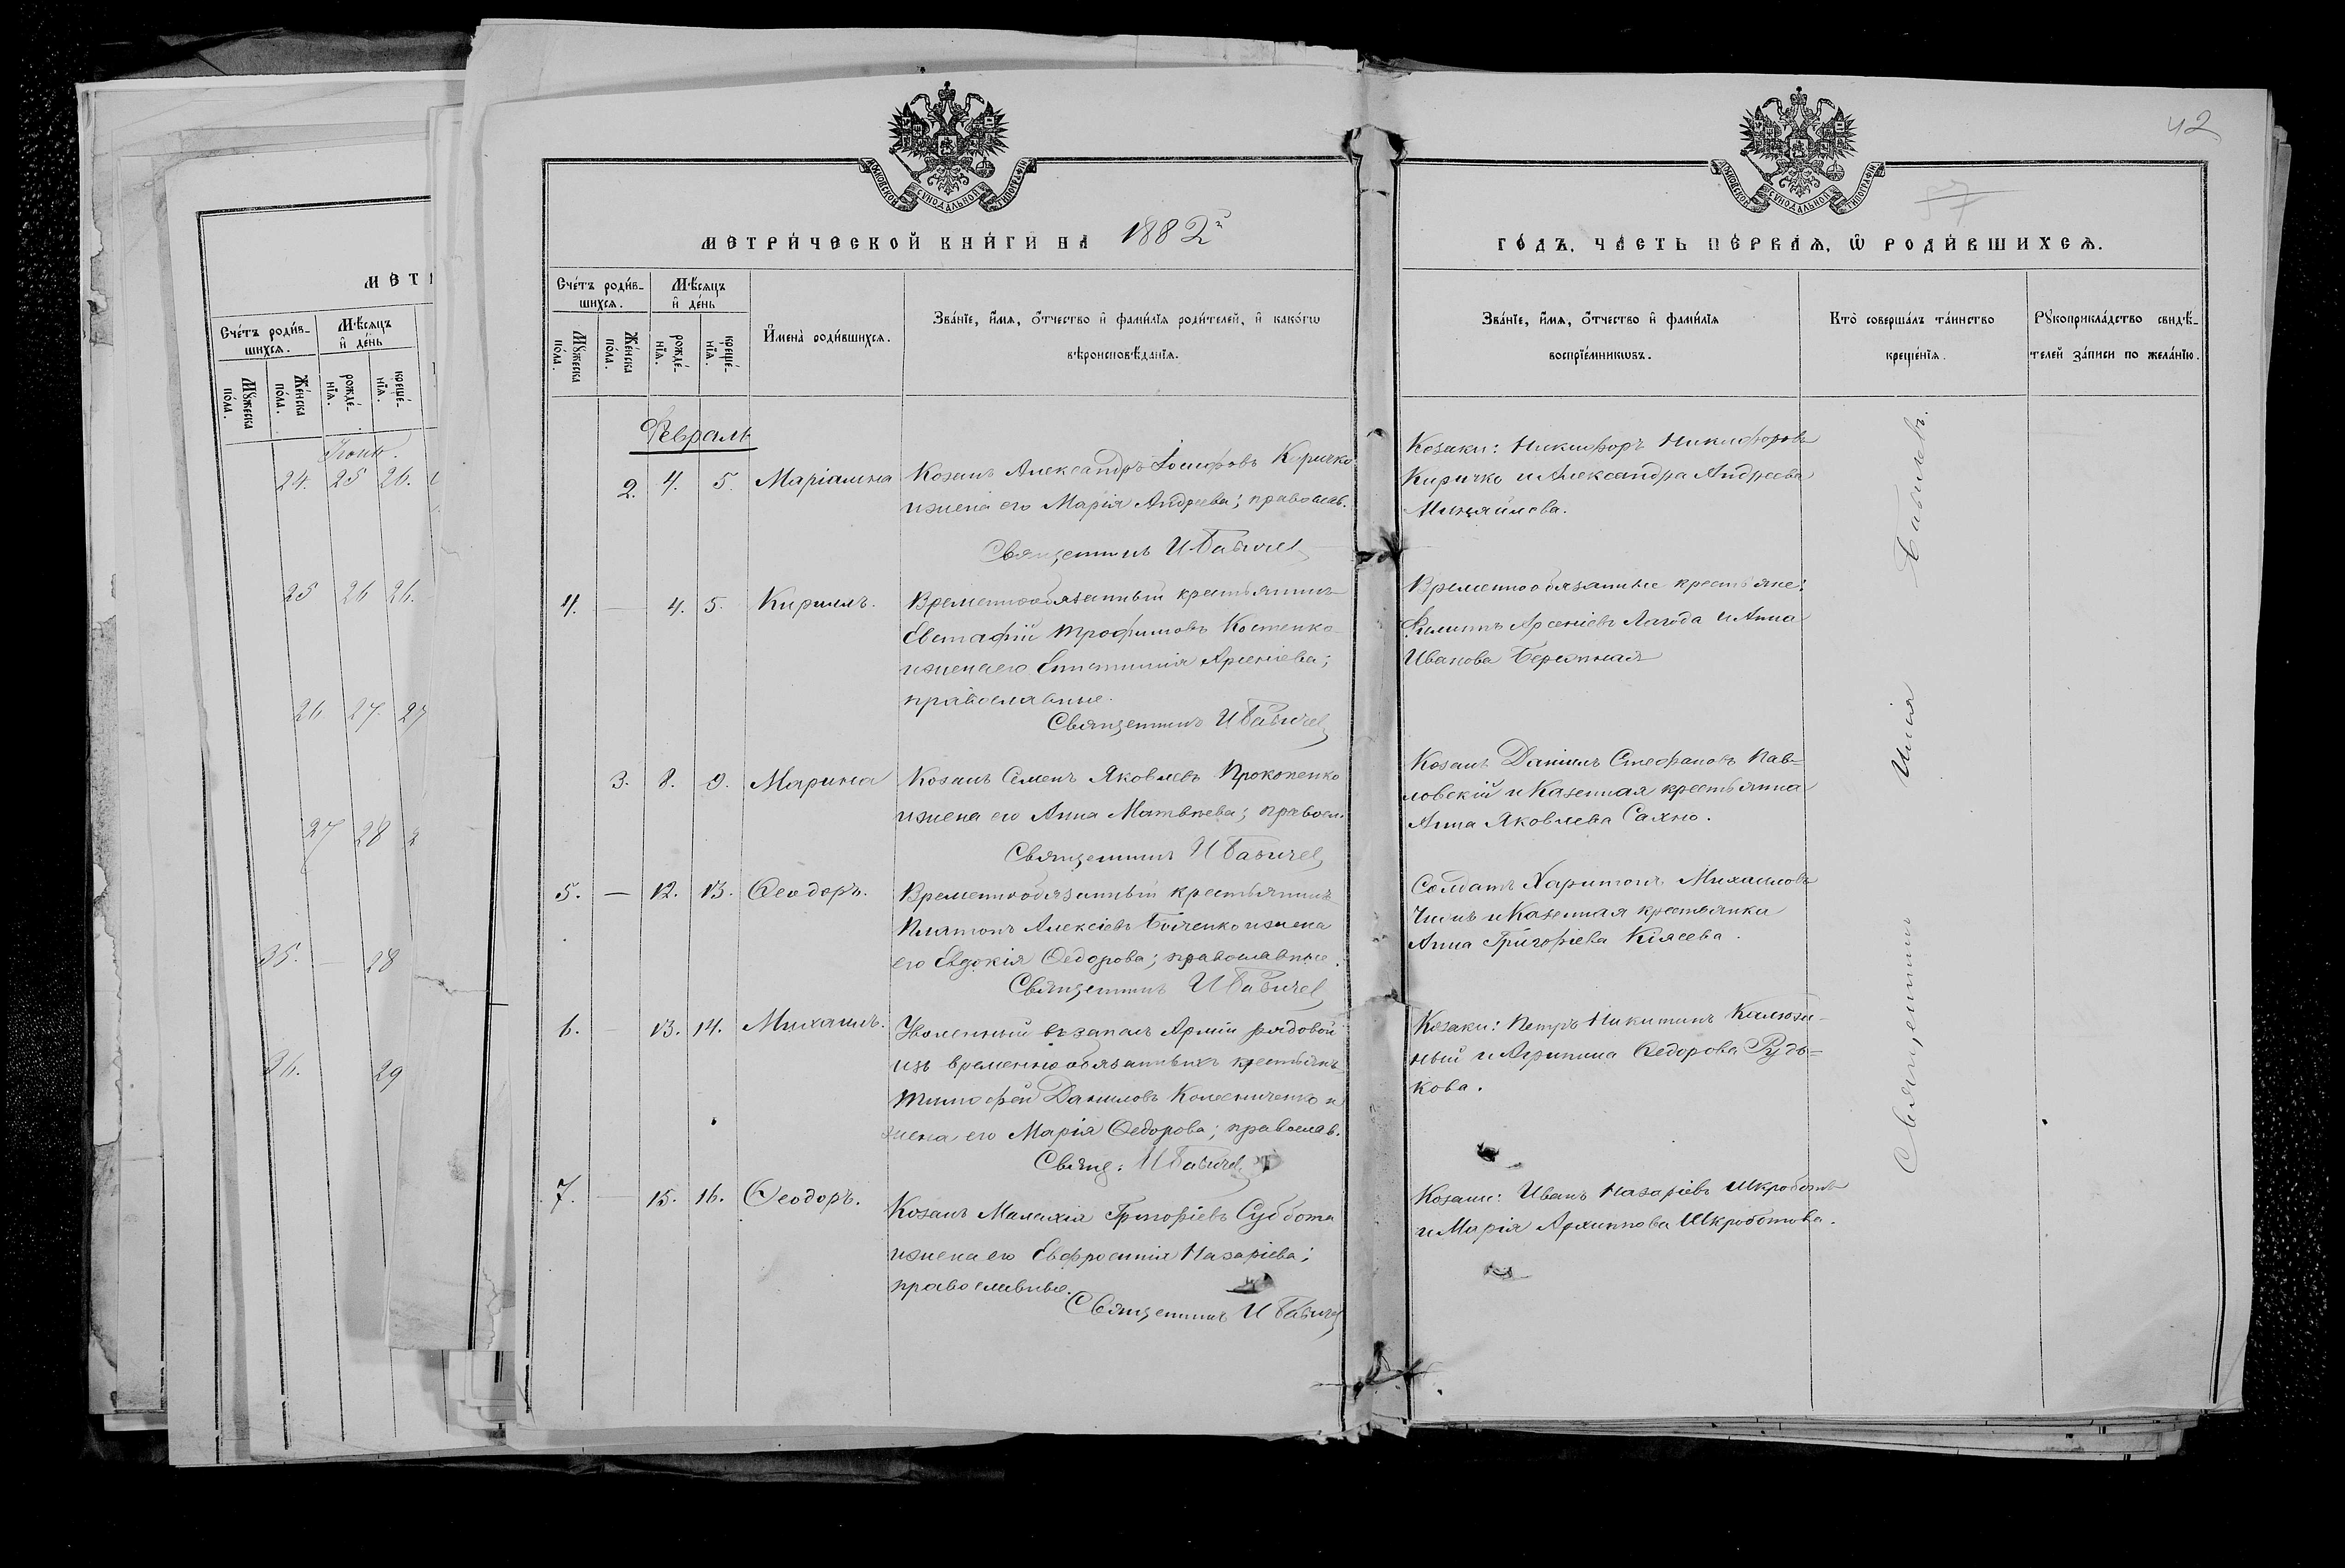 42
57
МЕТРИ́ЧЕСКОЙ КНИ́ГИ НА 1882й
ГО́ДЪ, ЧА́СТЬ ПЕ́РВАЯ, Ѿ РОДИ́ВШИХСЯ.
МОСКОВСКОЙ СѴНОДАЛЬНОЙ ТИПОГРАФІИ
МОСКОВСКОЙ СѴНОДАЛЬНОЙ ТИПОГРАФІИ
Сче́тъ роди́в-
шихся.
Мѣ́сяцъ
и҆ де́нь
Мꙋ́жеска по́ла.
Же́нска по́ла.
рожде́-нїя.
креще́-нїя.
И҆мена̀ роди́вшихся.
Зва́нїе, и҆́мя, ѻ҆́тчество и҆ фами́лїя роди́телей, и҆ како́гѡ
вѣроисповѣ́данїя.
Зва́нїе, и҆́мя, ѻ҆́тчество и҆ фами́лїя
воспрїе́мникѡвъ.
Кто̀ соверша́лъ та́инство
креще́нїя.
Рꙋкоприкла́дство свидѣ́-
телей за́писи по жела́нїю.
Февраль
2. 4. 5. Маріамна Козакъ Александръ Іосифовъ Киричко
и жена его Марія Андреева; православ.
Священникъ И Бабичев
Козаки: Никифоръ Никифоровъ
Киричко и Александра Андреева
4. — 4. 5. Кириллъ. Временнообязанный крестьянинъ
Евстафій Трофимовъ Костенко
и жена его Арсеніева;
православные.
Священникъ И Бабичев
Временнообязанные крестьяне:
Филиппъ Арсеніевъ Лагода и Анна
Иванова Бережная
3. 8. 9. Марина Козакъ Семенъ Яковлевъ Прокопенко
и жена его Анна Матвѣева; правосл.
Священникъ И Бабичев
Козакъ Даніилъ Стефановъ Пав=
ловскій и Казенная крестьянка
Анна Яковлева Сахно.
5. — 12. 13. Ѳеодоръ. Временнообязанный крестьянинъ
Платонъ Алексіевъ Бойченко и жена
его Евдокія Ѳедорова; православные.
Священникъ И Бабичев
Солдатъ Харитонъ Михаиловъ
и Казенная крестьянка
Анна Григоріева
6. — 13. 14. Михаилъ. Уволенный въ запасъ Арміи рядовой
изъ временнообязанныхъ крестьянъ
Тимофей Даниловъ Колесниченко и
жена его Марія Ѳедорова; православ.
Свящ: И Бабичев
Козаки: Петръ Никитинъ Калюж-
ный и Агрипина Ѳедорова Рудь=
кова.
7. — 15. 16. Ѳеодоръ. Козакъ Малахія Григоріевъ Суббота
и жена его Евфросинія Назаріева;
православные.
Священникъ И Бабичев
Козаки: Иванъ Назаріевъ Шкроботъ
и Марія Архиппова Шкроботова.
Священникъ Илія Бабичевъ.
МЕТ
Сче́тъ роди́в-
шихся.
Мѣ́сяцъ
и҆ де́нь
Мꙋ́жеска по́ла.
Же́нска по́ла.
рожде́-нїя.
креще́-нїя.
24. 25 26.
25 26 26.
26. 27. 27
27 28 2
35. — 28
36. 29